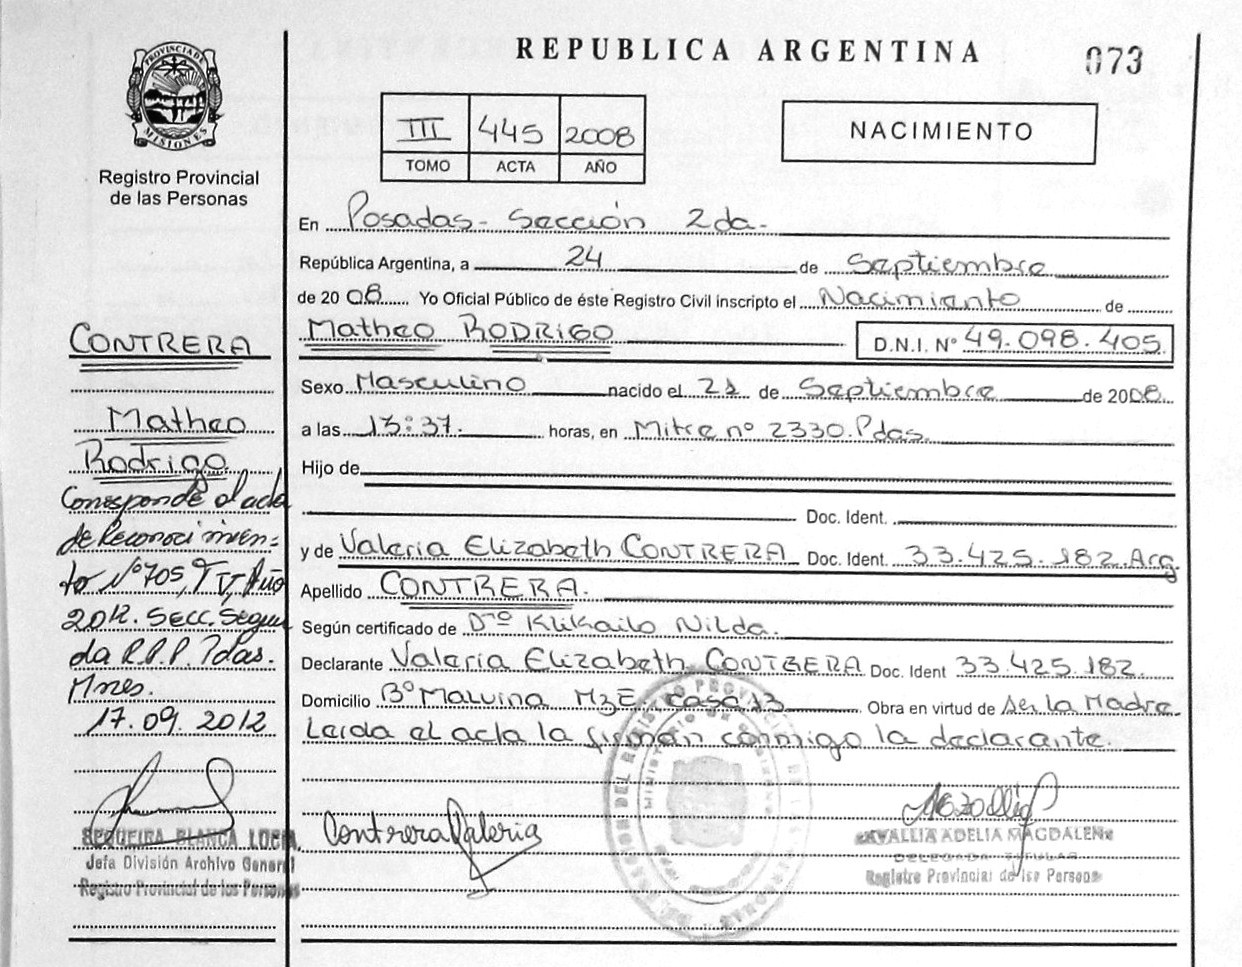 REPUBLICA ARGENTINA
073
PROVINCIA DE
MISIONES
Registro Provincial
de las Personas
III 445 2008
TOMO ACTA AÑO
NACIMIENTO
En Posadas - Sección 2da.
República Argentina, a 24 de Septiembre
de 2008 Yo Oficial Público de éste Registro Civil inscripto el Nacimiento de
Matheo RODRIGO D.N.I. Nº 49.098.405
Sexo Masculino nacido el 21 de Septiembre de 2008
a las 13:37. horas, en Mitre nº 2330. Pdas.
Hijo de
Doc. Ident.
y de Valeria Elizabeth CONTRERA Doc. Ident. 33.425.182. Arg.
Apellido CONTRERA.
Según certificado de Nilda.
Declarante Valeria Elizabeth CONTRERA Doc. Ident 33.425.182.
Domicilio Bº Malvina Mz E casa 13 Obra en virtud de ser la Madre.
Leída el acta la firman conmigo la declarante.
CONTRERA
Matheo
Rodrigo
Corresponde al acta
de Reconocimien-
to Nº 705, T V, Año
2012. Secc. Segun
da R.P.P. Pdas.
Mnes.
17.09.2012
SEQUEIRA BLANCA LUCIA
Jefa División Archivo General
Registro Provincial de las Personas
Contrera Valeria
ADELIA MAGDALENA
DELEGADA TITULAR
Registro Provincial de las Personas